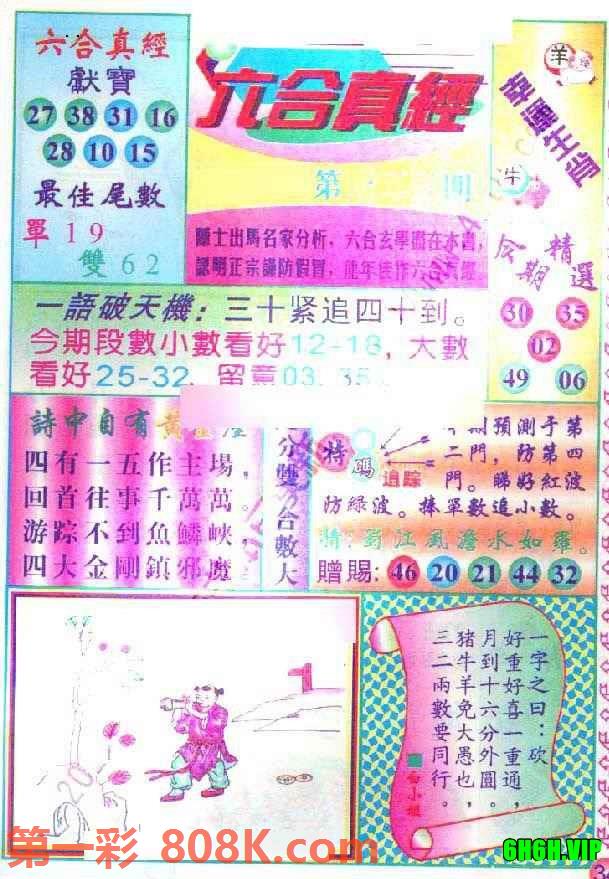 六合真經
獻寶
27 38 31 16
28 10 15
最佳尾數
單19
雙62
六合真經
第 期
隱士出馬名家分析，六合玄學盡在本書，
認明正宗謹防假冒，龍年佳作六合真經
羊
幸運生肖
牛
今期精選
30 35
02
49 06
一語破天機：三十紧追四十到。
今期段數小數看好12-18，大數
看好25-32，留意03，35
詩中自有黃
四有一五作主場，
回首往事千萬萬。
游踪不到魚鱗峽，
四大金剛鎮邪魔
分雙合數大
特碼
追踪
期預測于第
二門，防第四
門。睇好紅波
防綠波。捧單數追小數。
蜀江風澹水如羅。
贈賜：46 20 21 44 32
一字之曰：砍
好重好喜一重通，
月到十六分外圓，
猪牛羊兔大愚也，
三二兩數要同行。
白小姐
第一彩 808K.com
6H6H.VIP
3